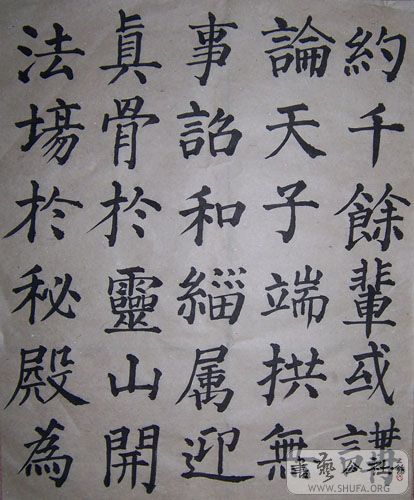 約千餘輩或講
論天子端拱無
事詔和緇属迎
眞骨於靈山開
法塲於秘殿為
WWW.SHUFA.ORG